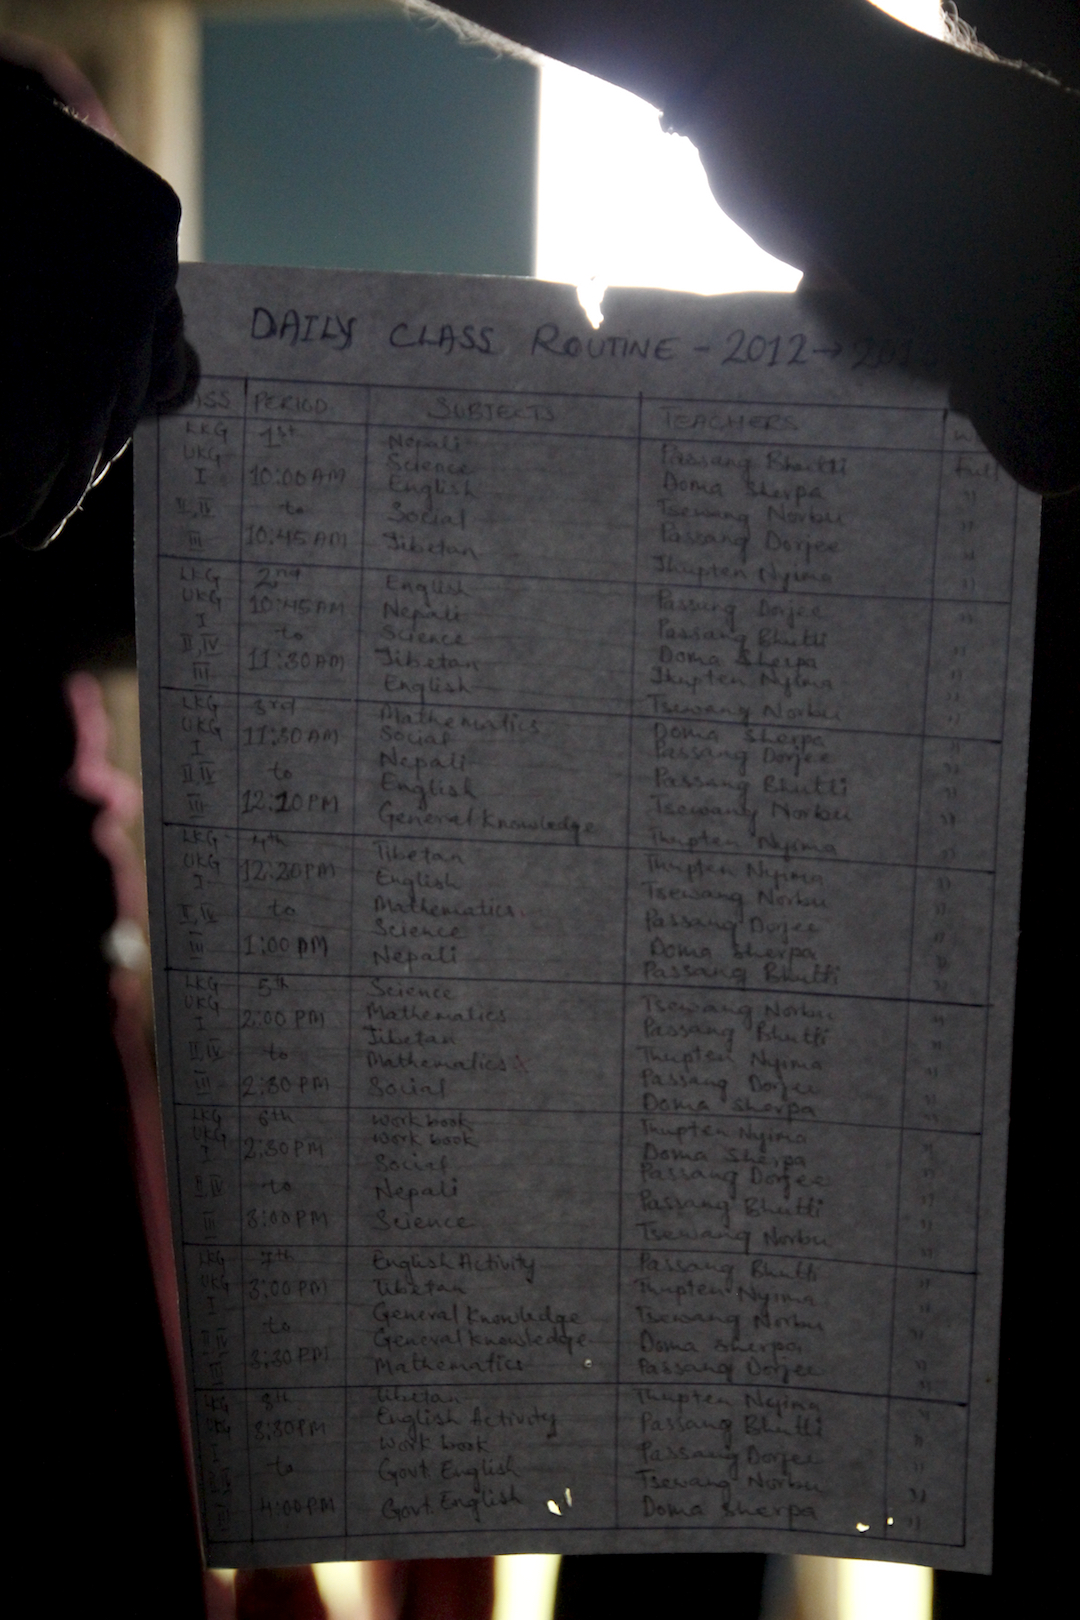 DAILY CLASS ROUTINE - 2012 →
ASS PERIOD SUBJECTS TEACHERS
LKG 1st Nepali Passang Bhutti full
UKG Science Doma Sherpa "
I 10:00AM English Tsewang Norbu "
II,IV to Social Passang Dorjee "
III 10:45AM Tibetan Thupten Nyima "
LKG 2nd English Passang Dorjee "
UKG 10:45AM Nepali Passang Bhutti
I to Science Doma Sherpa "
II,IV 11:30AM Tibetan Thupten Nyima "
III English Tsewang Norbu "
LKG 3rd Mathematics Doma Sherpa "
UKG 11:30AM Social Passang Dorjee "
I Nepali Passang Bhutti "
II,IV to English Tsewang Norbu "
III 12:20PM General Knowledge Thupten Nyima "
LKG 4th Tibetan Thupten Nyima "
UKG 12:20PM English Tsewang Norbu "
I Mathematics Passang Dorjee "
II,IV to Science Doma Sherpa "
III 1:00PM Nepali Passang Bhutti "
LKG 5th Science Tsewang Norbu "
UKG 2:00PM Mathematics Passang Bhutti "
I Tibetan Thupten Nyima "
II,IV to Mathematics Passang Dorjee "
III 2:30PM Social Doma Sherpa "
LKG 6th Work book Thupten Nyima "
UKG 2:30PM Work book Doma Sherpa "
I Social Passang Dorjee "
II,IV to Nepali Passang Bhutti "
III 3:00PM Science Tsewang Norbu "
LKG 7th English Activity Passang Bhutti "
UKG 3:00PM Tibetan Thupten Nyima "
I to General Knowledge Tsewang Norbu "
II,IV General Knowledge Doma Sherpa "
III 3:30PM Mathematics Passang Dorjee "
LKG 8th Tibetan Thupten Nyima "
UKG 3:30PM English Activity Passang Bhutti "
I Work book Passang Dorjee "
II,IV to Govt. English Tsewang Norbu "
III 4:00PM Govt. English Doma Sherpa "